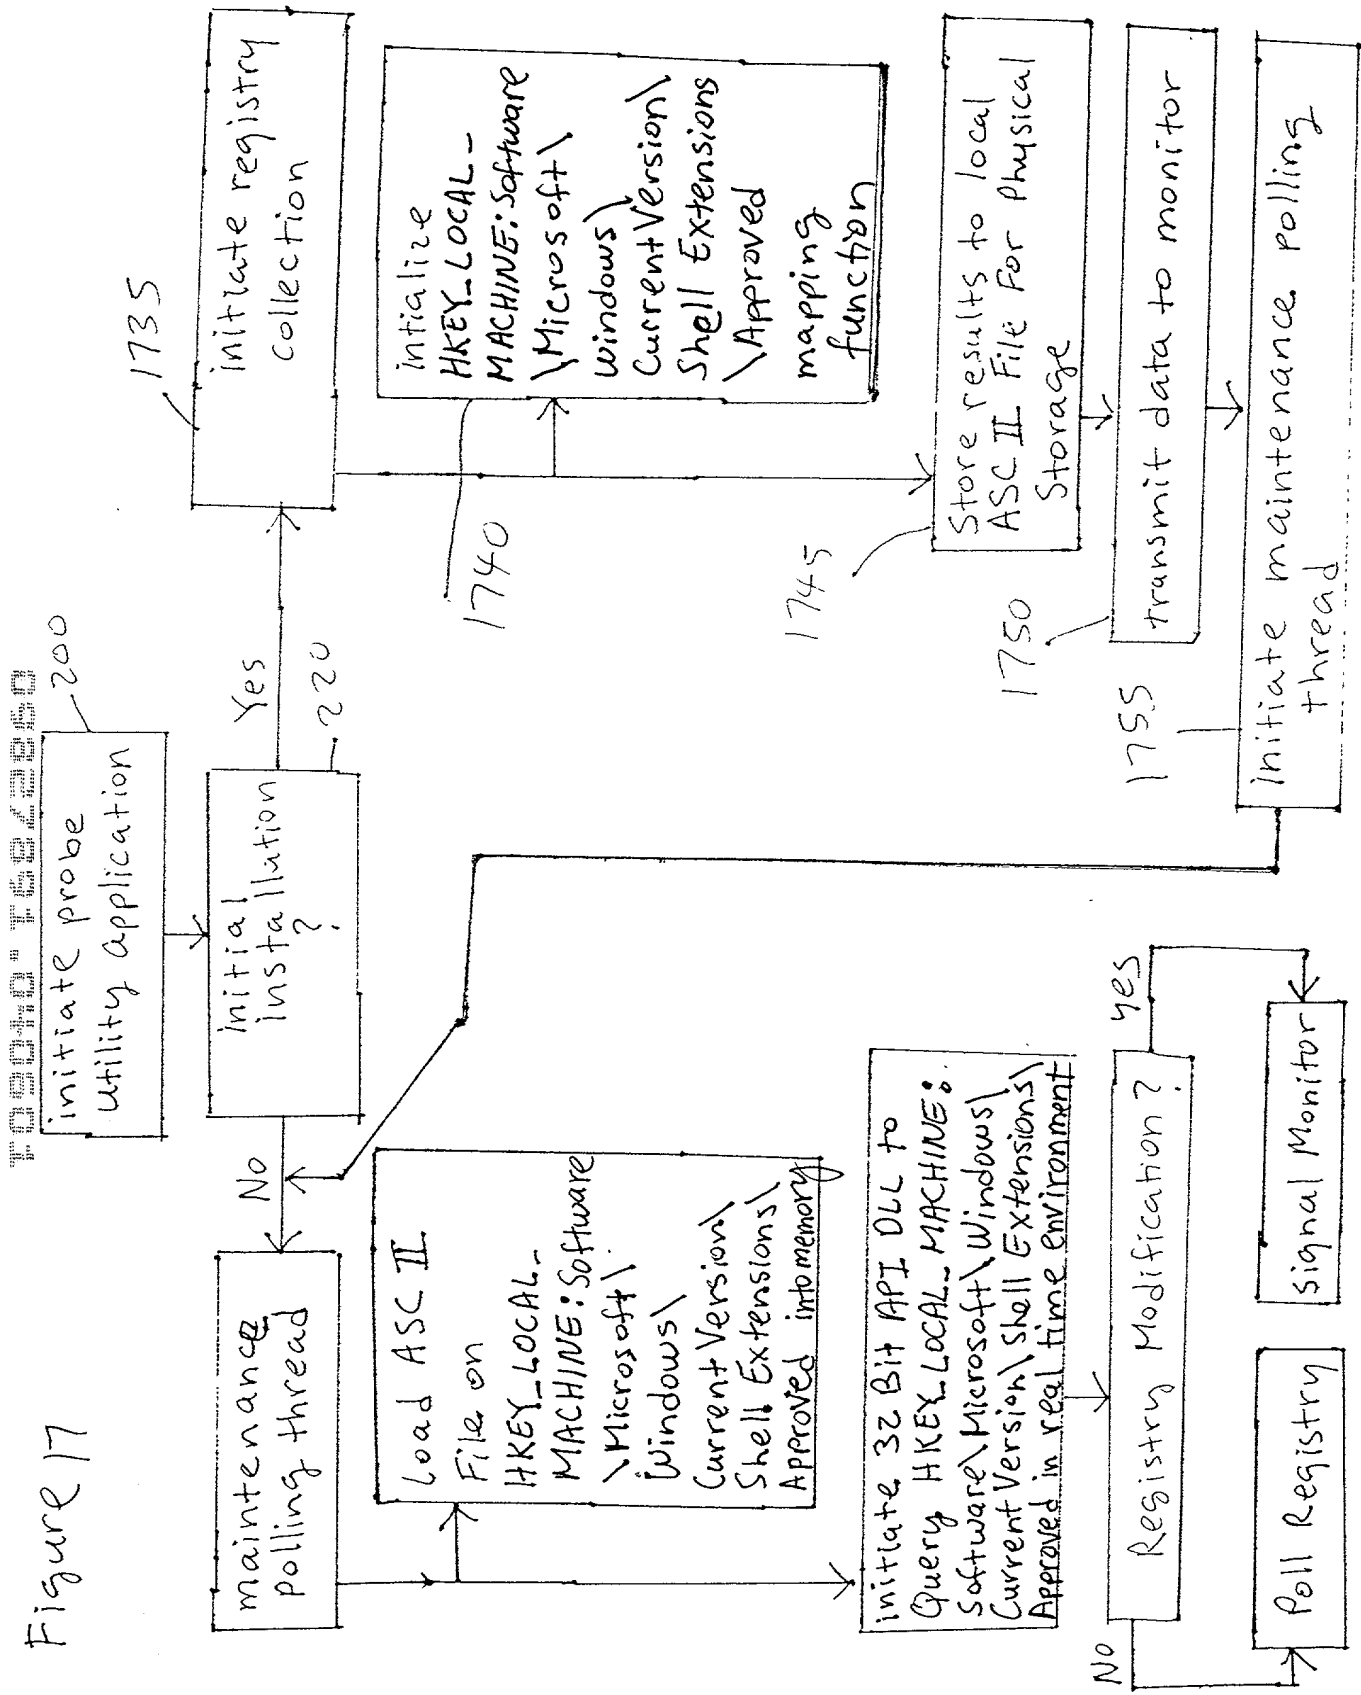 Figure 17
09827891.040601
initiate probe
utility application
200
initial
installution
?
220
Yes
No
1735
initiate registry
collection
intialize
HKEY_LOCAL_
MACHINE:Software
\Microsoft\
Windows\
CurrentVersion\
Shell Extensions
\Approved
mapping
function
1740
Store results to local
ASC II File For Physical
Storage
1745
transmit data to monitor
1750
initiate maintenance polling
thread
1755
maintenance
polling thread
Load ASC II
File on
HKEY_LOCAL_
MACHINE:Software
\Microsoft\
Windows\
CurrentVersion\
Shell Extensions\
Approved into memory
initiate 32 Bit API DLL to
Query HKEY_LOCAL_MACHINE:
Software\Microsoft\Windows\
CurrentVersion\Shell Extensions\
Approved in real time environment
Registry Modification?
yes
No
signal Monitor
Poll Registry